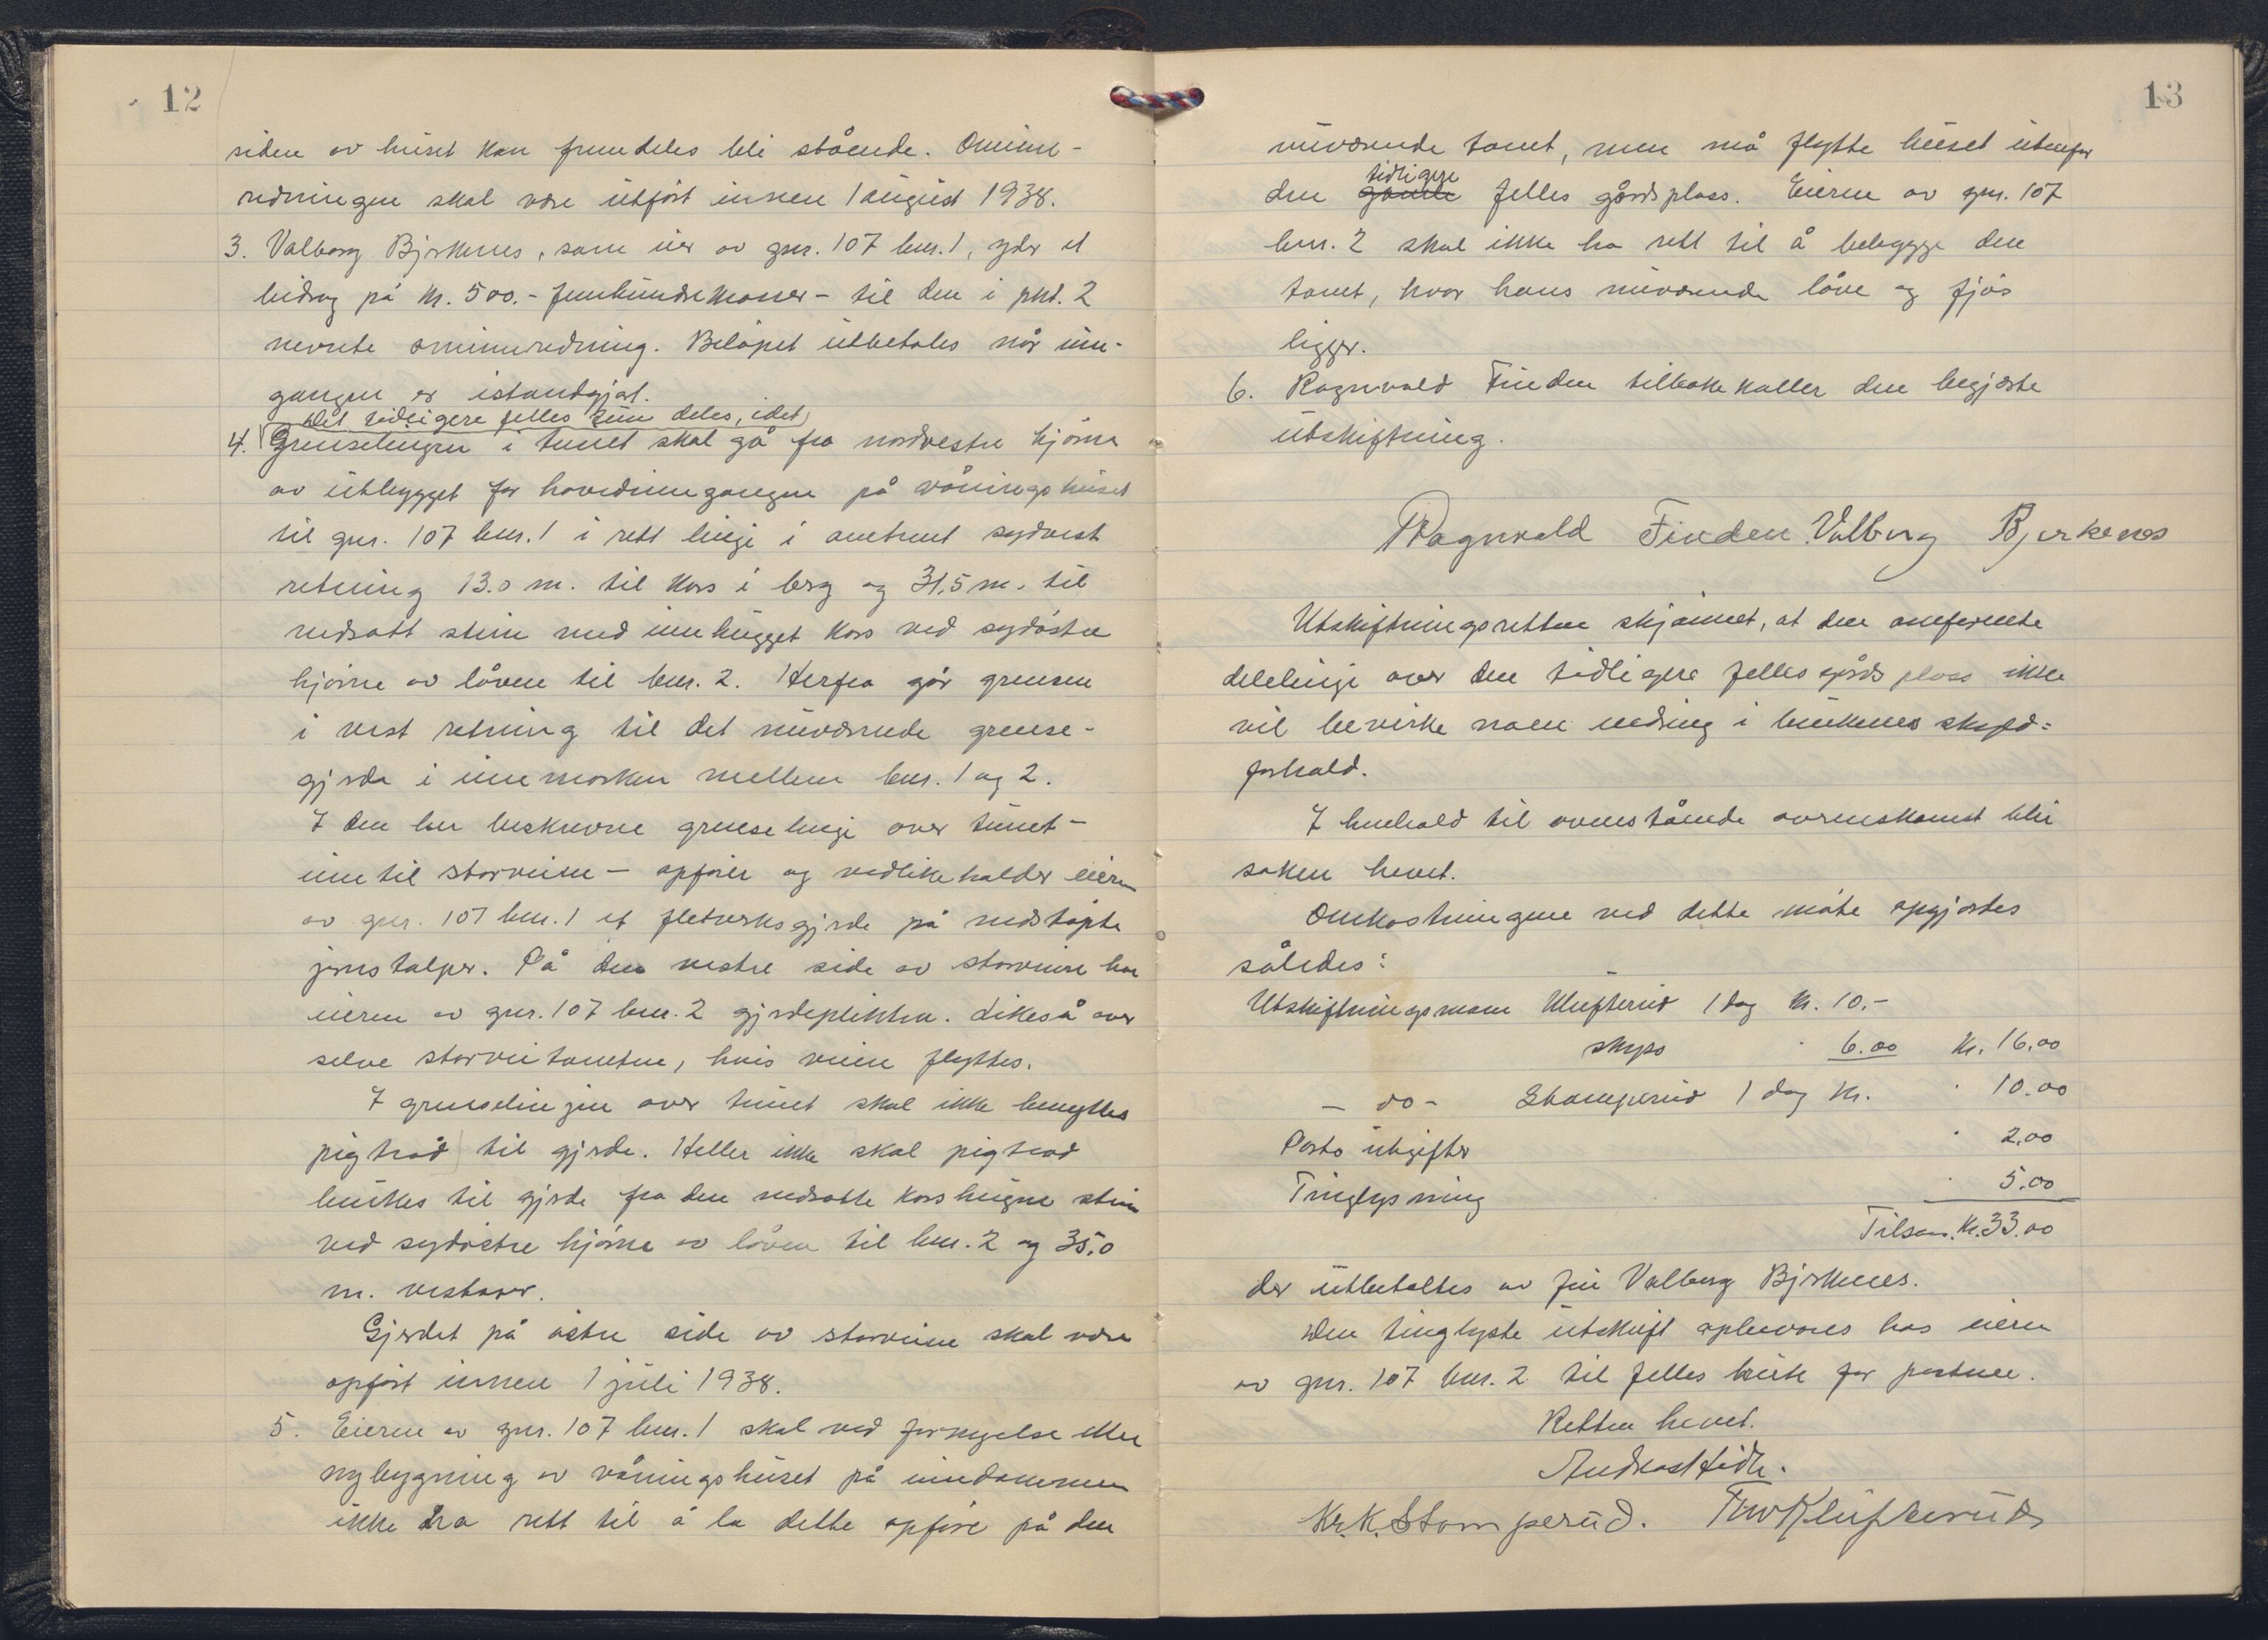 12
siden av huset kan fremdeles bli stående. Ominn-
redningen skal være utført innen 1 august 1938.
3. Valborg Bjerkenes, som eier av gnr. 107 bnr. 1, yder et
bidrag på kr. 500.- femhundrekroner - til den i pkt. 2
nevnte ominnredning. Beløpet utbetales når inn-
gangen er istandgjort.
Det tidligere felles tun deles, idet
4. Grenselinjen i tunet skal gå fra nordvestre hjørne
av utbygget for hovedinngangen på våningshuset
til gnr. 107 bnr. 1 i rett linje i omtrent sydvest
retning 13.0 m. til kors i berg og 31,5 m. til
nedsatt stein med innhugget kors ved sydøstre
hjørne av låven til bnr. 2. Herfra går grensen
i vest retning til det nuværende grense-
gjerde i innmarken mellem bnr. 1 og 2.
I den her beskrevne grenselinje over tunet -
inn til storveien - opfører og vedlikeholder eieren
av gnr. 107 bnr. 1 et fletverksgjerde på nedstøpte
jernstolper. På den vestre side av storveien har
eieren av gnr. 107 bnr. 2 gjerdeplikten. Likeså over
selve storveitomten, hvis veien flyttes.
I grenselinjen over tunet skal ikke benyttes
pigtråd til gjerde. Heller ikke skal pigtråd
brukes til gjerde fra den nedsatte korshugne stein
ved sydøstre hjørne av låven til bnr. 2 og 35,0
m. vestover.
Gjerdet på østre side av storveien skal være
opført innen 1 juli 1938.
5. Eieren av gnr. 107 bnr. 1 skal ved fornyelse eller
nybygning av våningshuset på eiendommen
ikke ha rett til å la dette opføre på den
13
nuværende tomt, men må flytte huset utenfor
tidligere
den gamle felles gårdsplass. Eieren av gnr. 107
bnr. 2 skal ikke ha rett til å bebygge den
tomt, hvor hans nuværende låve og fjøs
ligger.
6. Ragnvald Finden tilbakekaller den begjærte
utskiftning.
Ragnvald Finden Valborg Bjerkenes
Utskiftningsretten skjønnet, at den omforente
delelinje over den tidligere felles gårdsplass ikke
vil bevirke noen endring i brukenes skyld=
forhold.
I henhold til ovenstående overenskomst blir
saken hevet.
Omkostningene ved dette møte opgjordes
således:
Utskiftningsmann Klufterud 1 dag kr. 10.-
skyss " 6.00 kr. 16.00
- do - Stomperud 1 dag kr. " 10.00
Porto utgifter " 2.00
Tinglysning " 5.00
Tilsam. kr. 33.00
der utbetaltes av fru Valborg Bjerkenes.
Den tinglyste utskrift opbevares hos eieren
av gnr. 107 bnr. 2 til felles bruk for partene.
Retten hevet.
Kr. K. Stomperud. Klufterud